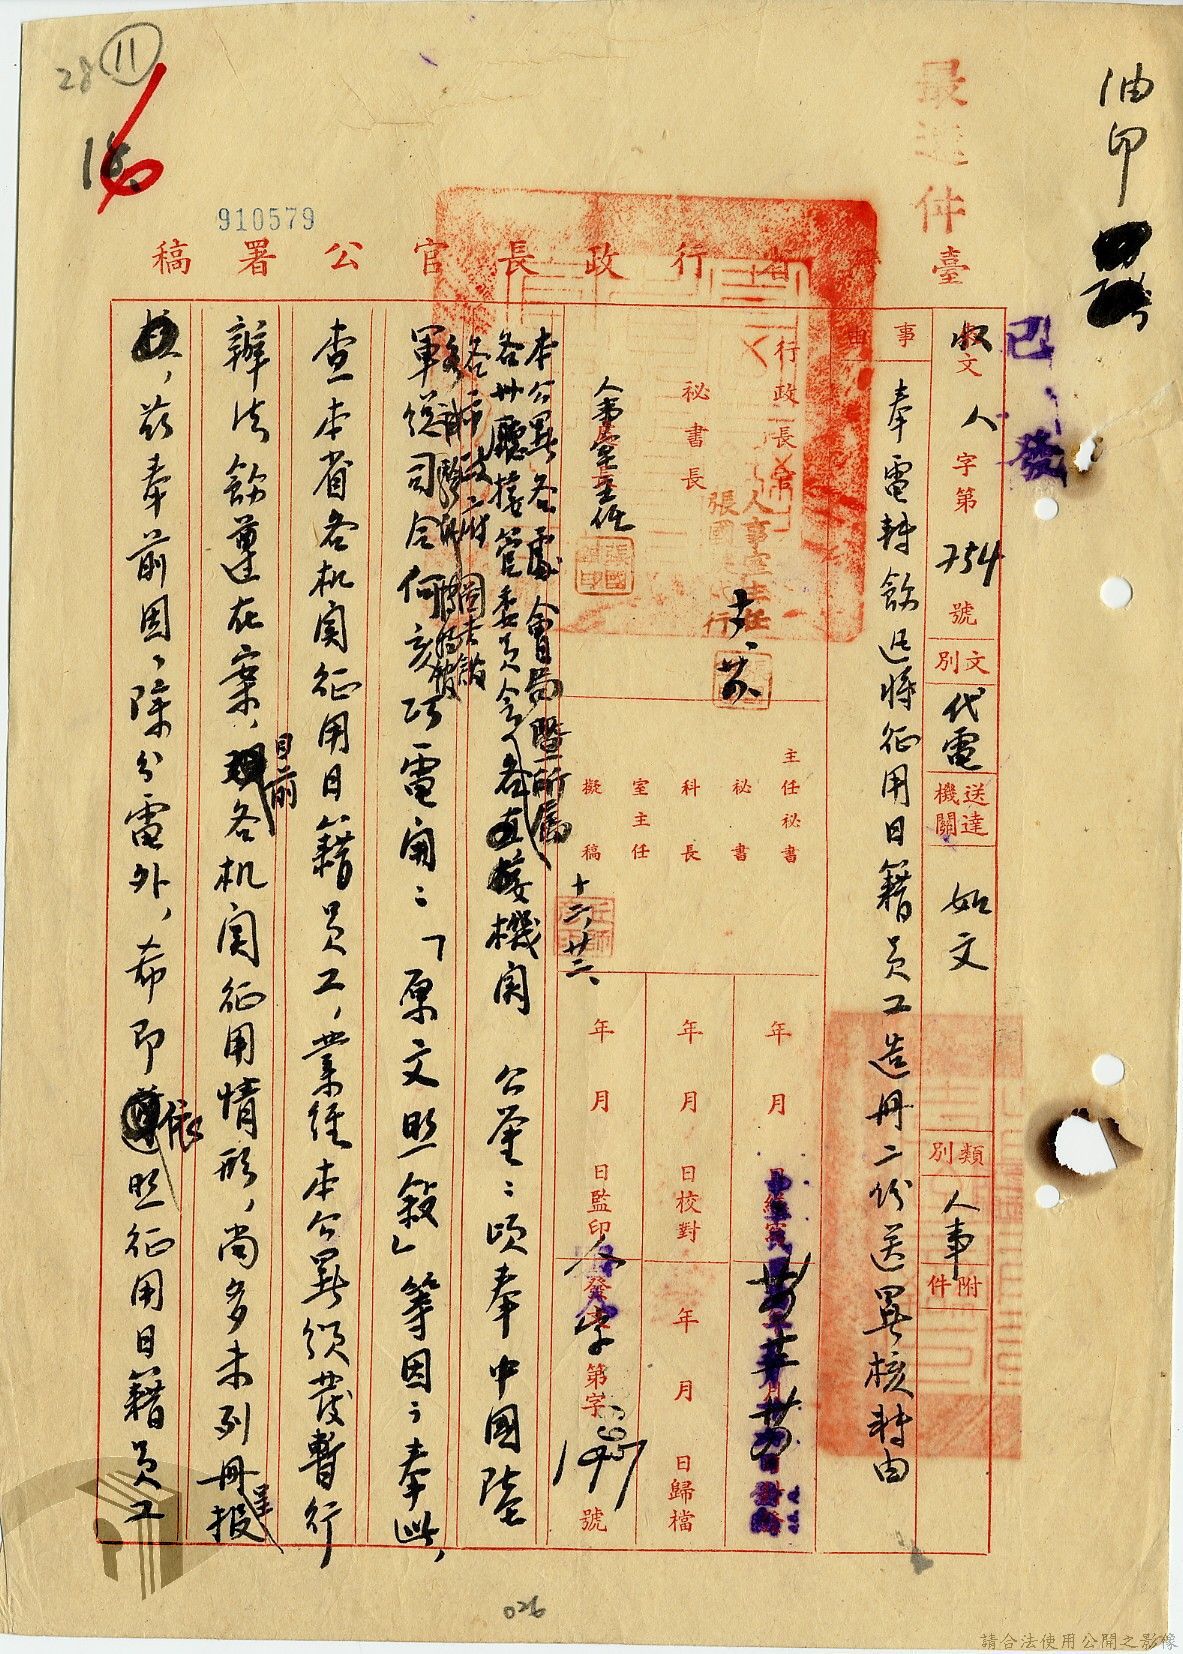 油印
最速件
已發
28
11
18
910579
臺灣省行政長官公署稿
收文 人字第754號
文別 代電
送達機關 如文
類別 人事
附件
事由
奉電轉飭迅將征用日籍員工造冊二份送署核轉由
行政長官
秘書長
人事室主任
張國
人事室主任
主任秘書
秘書
科長
室主任
擬稿
十二、廿二、
年月日繕寫
年月日校對
年月日監印
年月日歸檔
發文 人字第1497號
本公署各處會局暨所屬
各州廳接管委員會 機關 公鑒：頃奉中國陸
各市政府
軍總司令何亥巧電開：「原文照敘」等因；奉此，
查本省各机関征用日籍員工，業經本公署頒發暫行
辦法飭遵在案，目前各机関征用情形，尚多未列冊報
呈
，茲奉前因，除分電外，希即依照征用日籍員工
026
請合法使用公開之影像